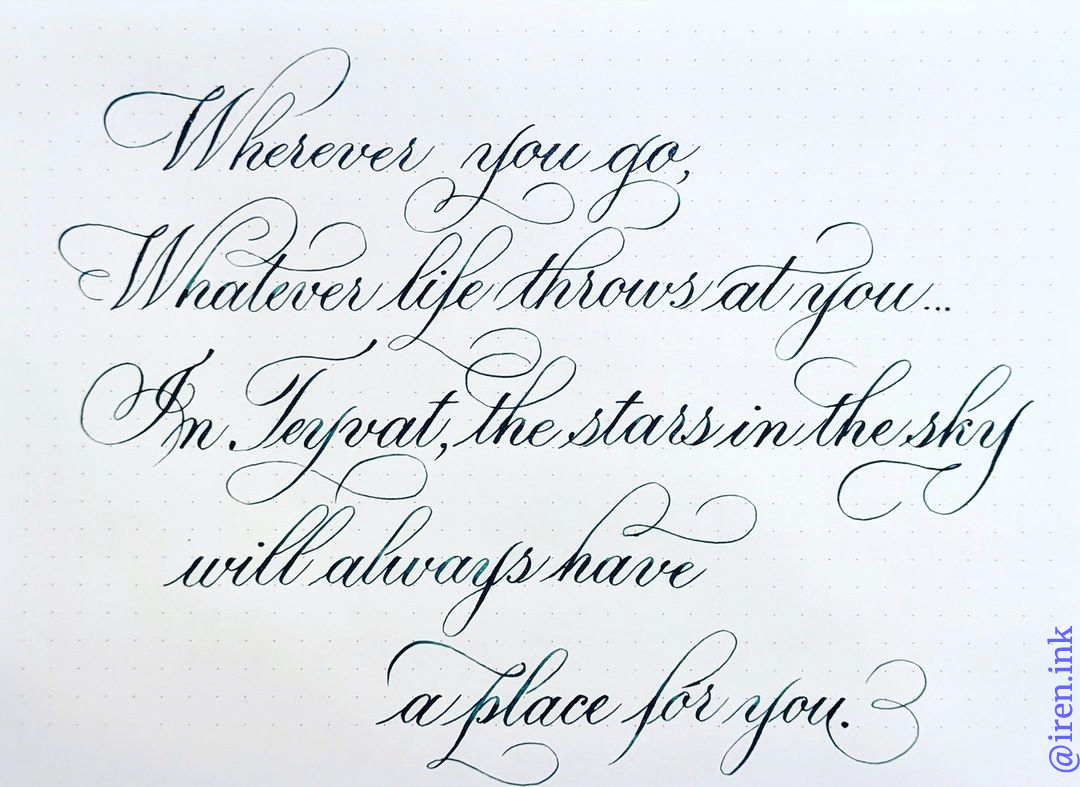 Wherever you go,
Whatever life throws at you...
In Teyvat, the stars in the sky
will always have
a place for you.
@iren.ink